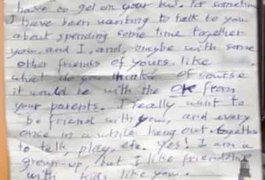 have to get on your bus. For sometime
I have been wanting to talk to you
about spending some time together
you and I, and, maybe with some
other friends of yours. like
what do you think? of course
it would be with the OK from
your parents. I really want to
be friend with you, and every
once in a while hang out together
to talk, play, etc. Yes! I am a
grown-up, but I like friendship
with kids like you.